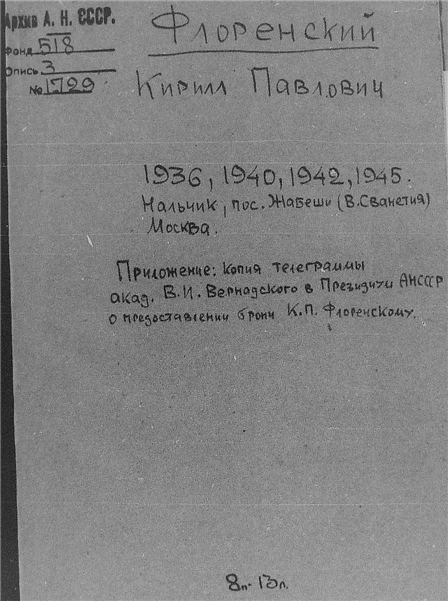 Архив А. Н. СССР.
Фонд 518
Опись 3
№ 1729
Флоренский
Кирилл Павлович
1936, 1940, 1942, 1945.
Нальчик, пос. Жабеши (В. Сванетия)
Москва.
Приложение: Копия телеграммы
акад. В.И. Вернадского в Президиум АН СССР
о предоставлении брони К.П. Флоренскому.
8п.-13л.